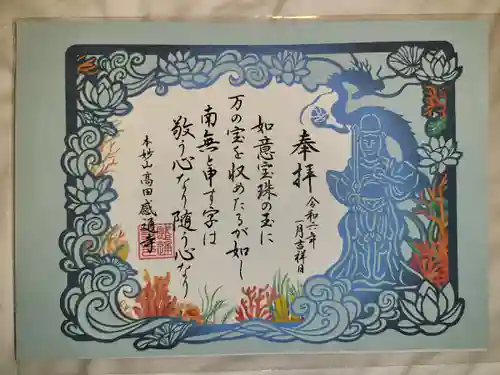 奉拝
令和六年
一月吉祥日
如意宝珠の玉に
万の宝を収めたるが如し
南無と申す字は
敬う心なり随う心なり
本妙山 高田 感通寺